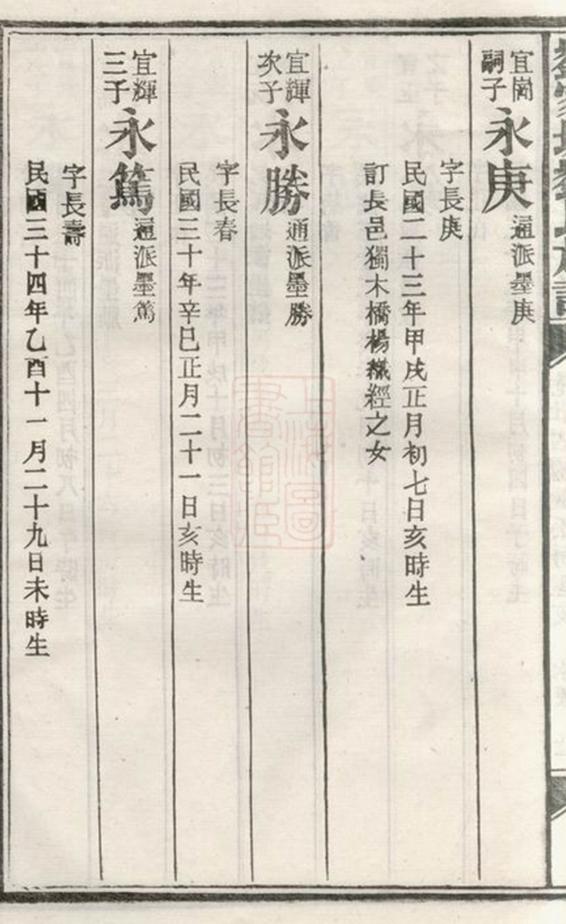 宜崗嗣子永庚通派墨庚
字長庚
民國二十三年甲戌正月初七日亥時生
訂長邑獨木橋楊繼經之女
宜輝次子永勝通派墨勝
字長春
民國三十年辛巳正月二十一日亥時生
宜輝三子永篤通派墨篤
字長壽
民國三十四年乙酉十一月二十九日未時生